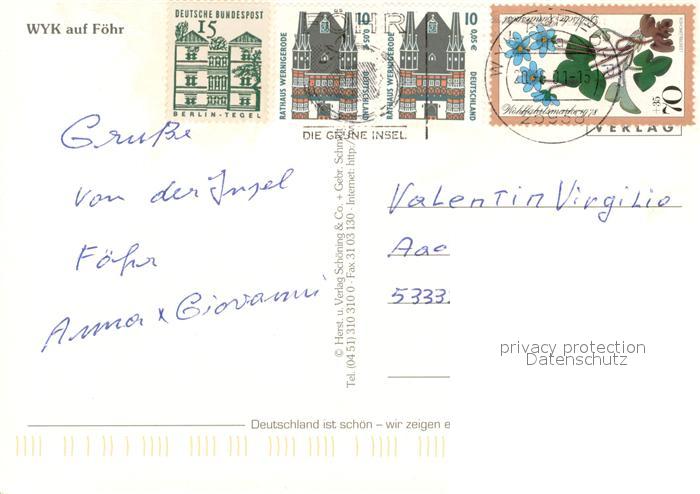 WYK auf Föhr
DEUTSCHE BUNDESPOST
15
BERLIN-TEGEL
10
0,05 €
RATHAUS WERNIGERODE
DEUTSCHLAND
10
0,05 €
RATHAUS WERNIGERODE
DEUTSCHLAND
Deutsche Bundespost
Wohlfahrtsmarke
70
+35
DIE GRÜNE INSEL
25938
VERLAG
Gruße
von der Insel
Föhr
Anna & Giovanni
© Herst. u. Verlag Schöning & Co. + Gebr. Schmidt
Tel. (04 51) 310 310 0 - Fax 31 03 130 - Internet: http://
Valentin Virgilio
Aac
5333
privacy protection
Datenschutz
Deutschland ist schön – wir zeigen e